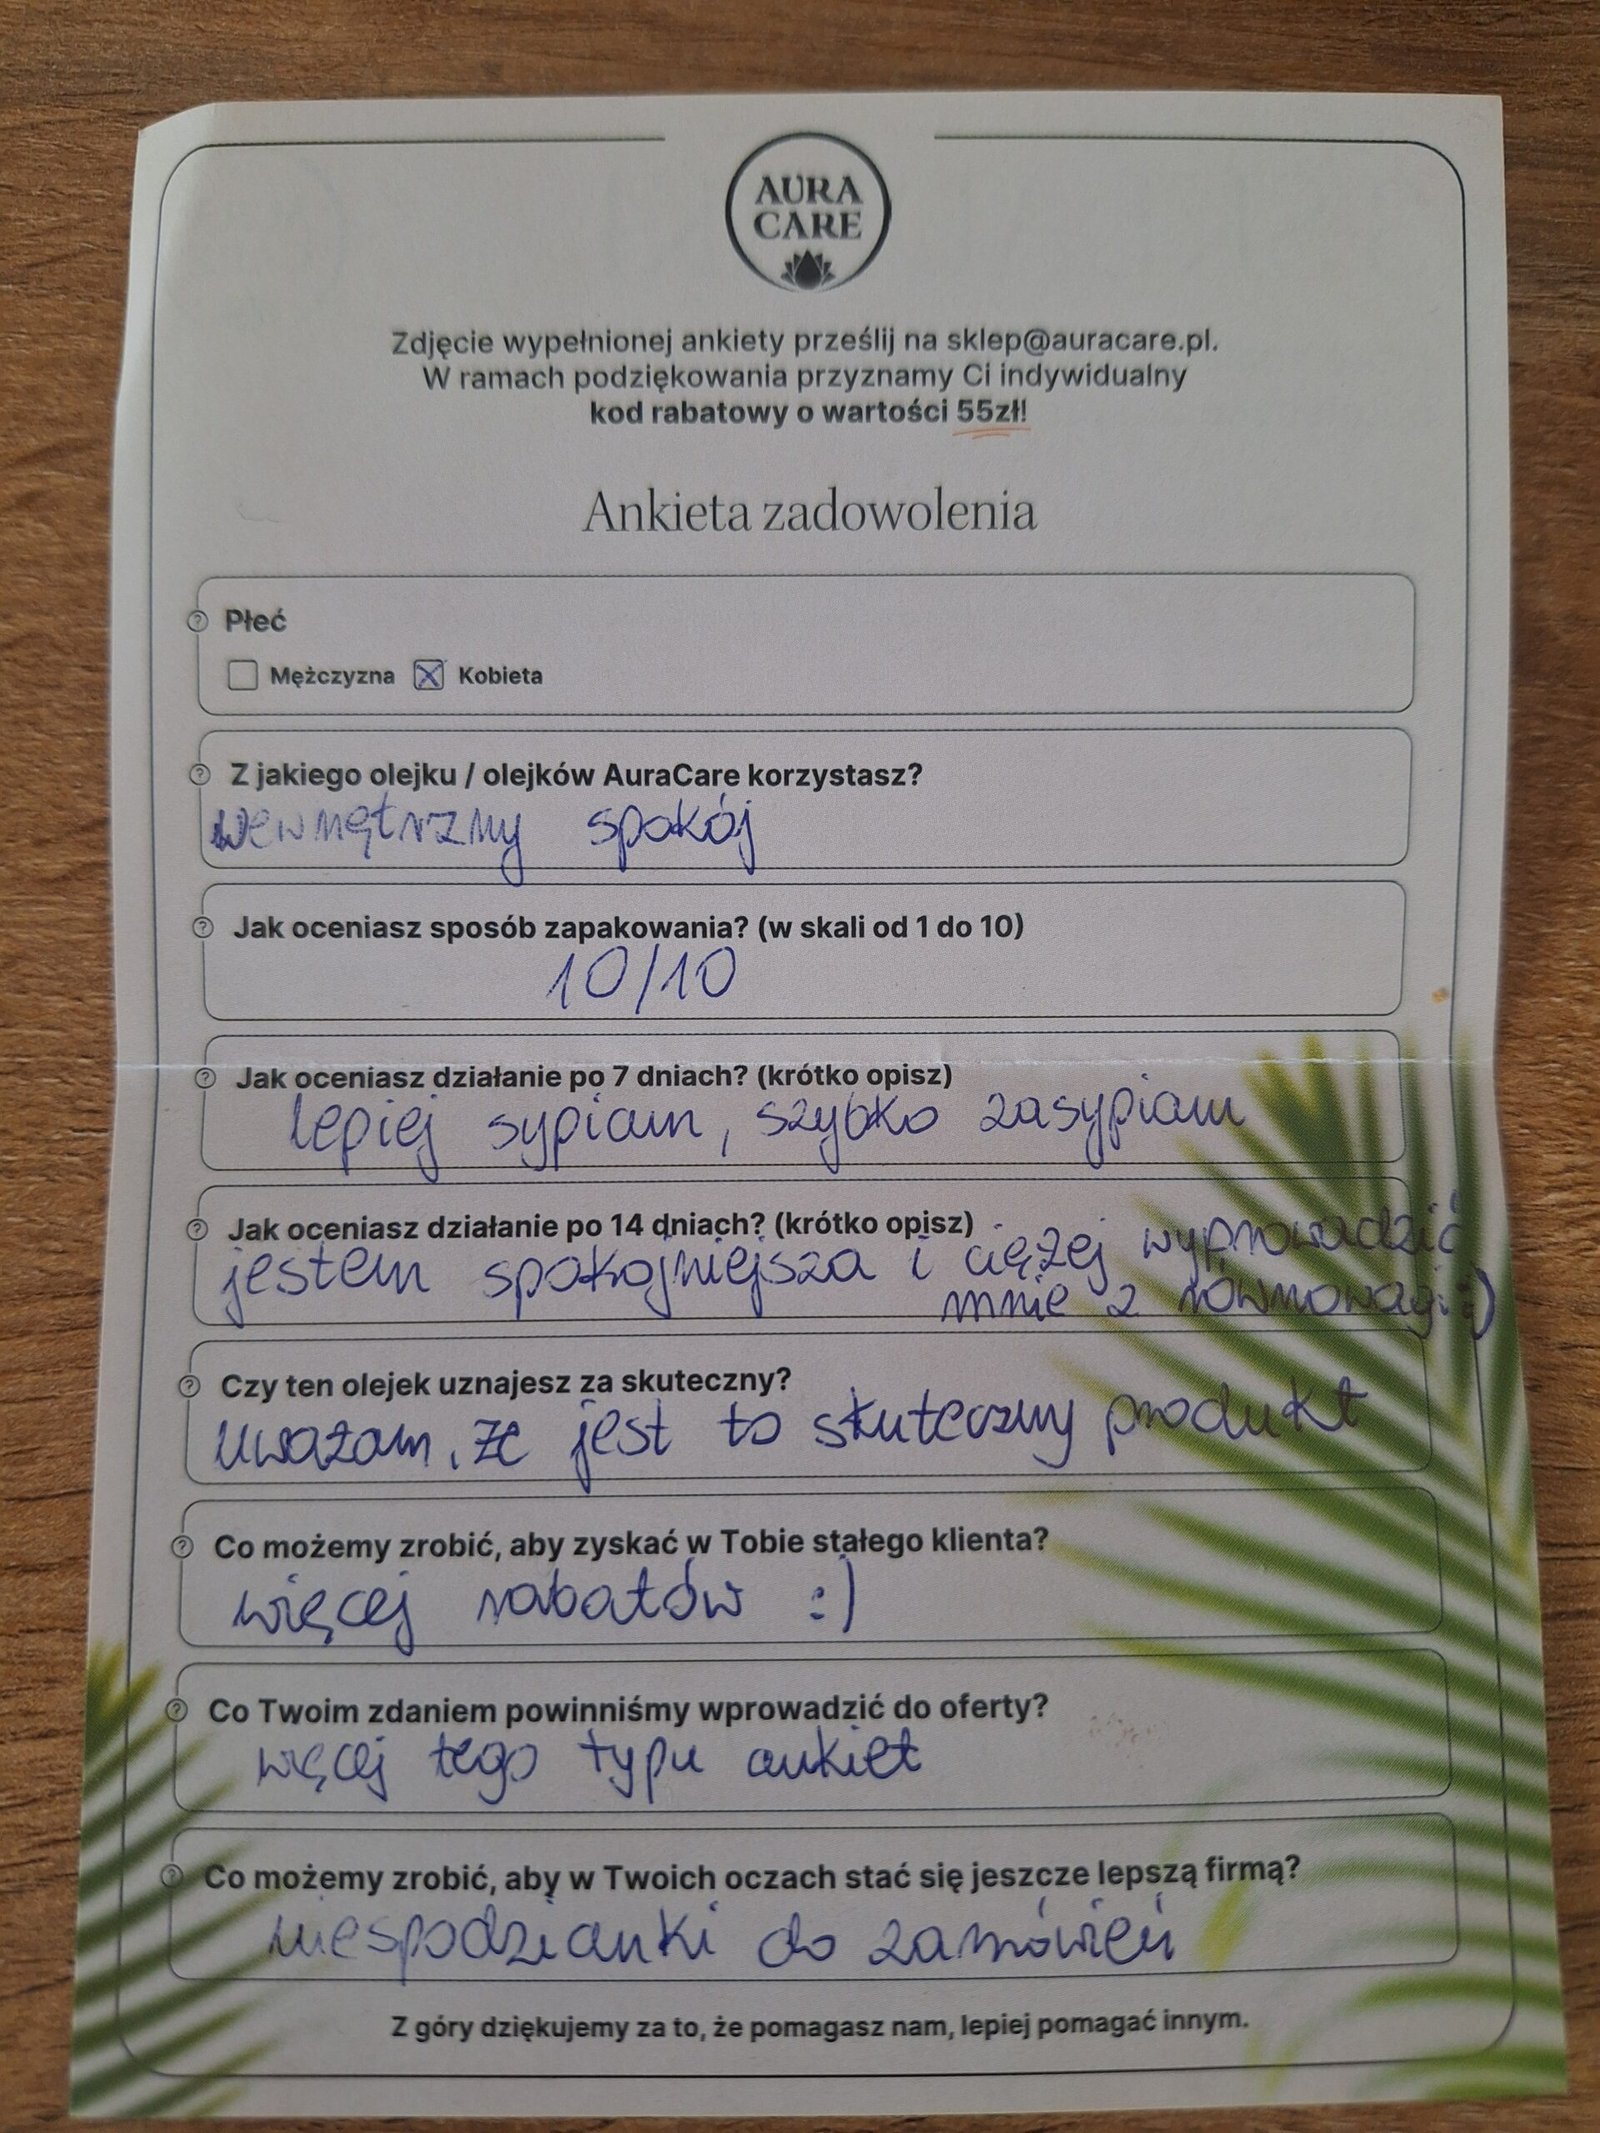 AURA
CARE
Zdjęcie wypełnionej ankiety prześlij na sklep@auracare.pl.
W ramach podziękowania przyznamy Ci indywidualny
kod rabatowy o wartości 55zł!
Ankieta zadowolenia
Płeć
Mężczyzna Kobieta
Z jakiego olejku / olejków AuraCare korzystasz?
wewnętrzny spokój
Jak oceniasz sposób zapakowania? (w skali od 1 do 10)
10/10
Jak oceniasz działanie po 7 dniach? (krótko opisz)
lepiej sypiam, szybko zasypiam
Jak oceniasz działanie po 14 dniach? (krótko opisz)
jestem spokojniejsza i ciężej wyprowadzić
mnie z równowagi :)
Czy ten olejek uznajesz za skuteczny?
uważam, że jest to skuteczny produkt
Co możemy zrobić, aby zyskać w Tobie stałego klienta?
więcej rabatów :)
Co Twoim zdaniem powinniśmy wprowadzić do oferty?
więcej tego typu ankiet
Co możemy zrobić, aby w Twoich oczach stać się jeszcze lepszą firmą?
niespodzianki do zamówień
Z góry dziękujemy za to, że pomagasz nam, lepiej pomagać innym.